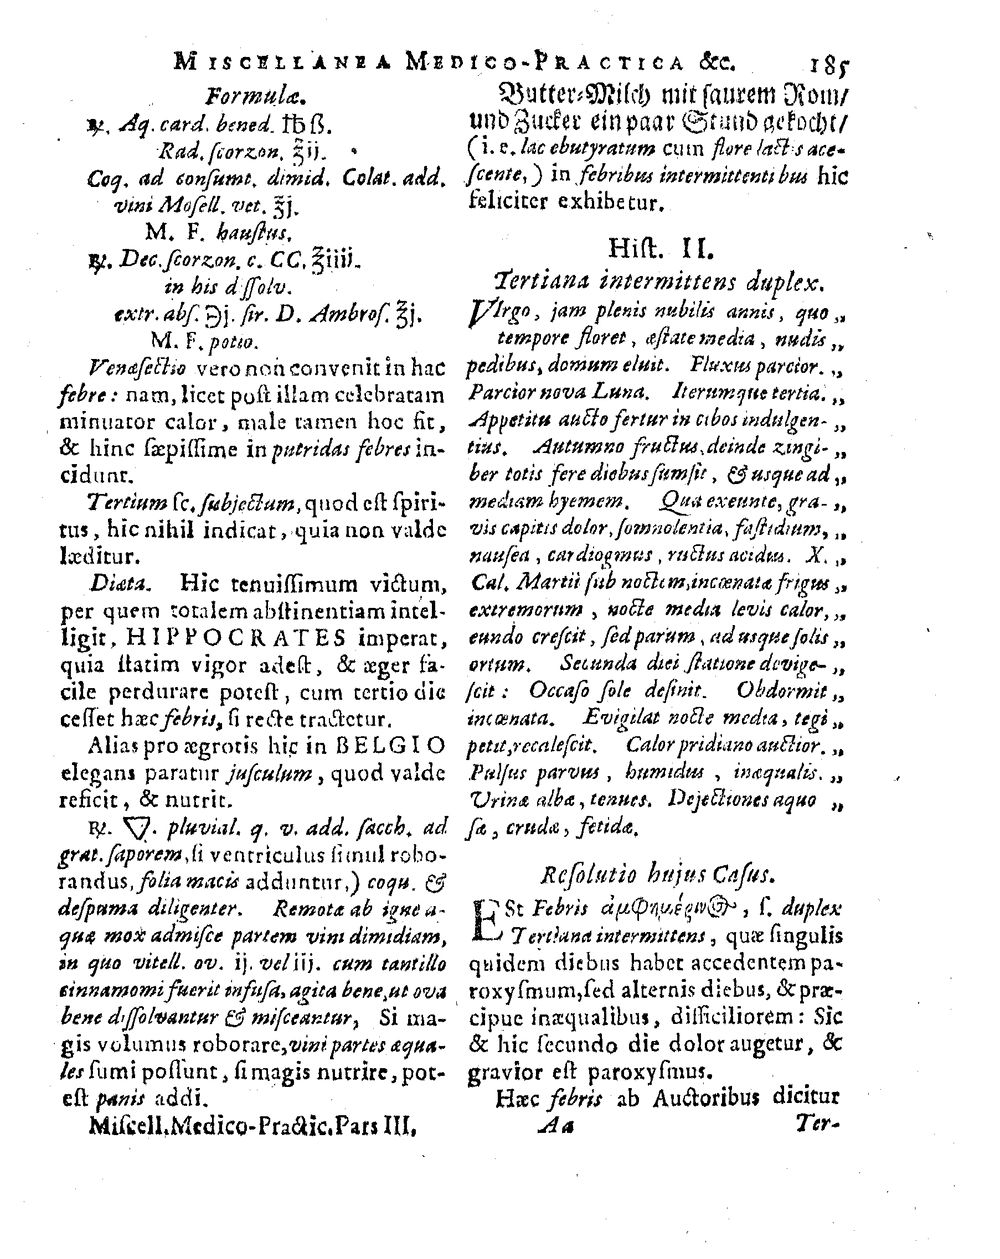 MISCELLANEA MEDICO-PRACTICA &c. 185
Formulæ.
℞. Aq. card. bened. ℔ ß.
Rad. ſcorzon. ℥ij.
Coq. ad conſumt. dimid. Colat. add.
vini Moſell. vet. ℥j.
M. F. hauſtus.
℞. Dec. ſcorzon. c. CC. ℥iiij.
in his diſſolv.
extr. abſ. ℈j. ſir. D. Ambroſ. ℥j.
M. F. potio.
Venæſectio vero non convenit in hac
febre: nam, licet poſt illam celebratam
minuator calor, male tamen hoc fit,
& hinc ſæpiſſime in putridas febres in-
cidunt.
Tertium ſc. ſubjectum, quod eſt ſpiri-
tus, hic nihil indicat, quia non valde
læditur.
Diæta. Hic tenuiſſimum victum,
per quem totalem abſtinentiam intel-
ligit, HIPPOCRATES imperat,
quia ſtatim vigor adeſt, & æger fa-
cile perdurare poteſt, cum tertio die
ceſſet hæc febris, ſi recte tractetur.
Alias pro ægrotis hic in BELGIO
elegans paratur juſculum, quod valde
reficit, & nutrit.
℞. 🜄. pluvial. q. v. add. ſacch. ad
grat. ſaporem, ſi ventriculus ſimul robo-
randus, folia macis adduntur,) coqu. &
deſpuma diligenter. Remotæ ab igne a-
quæ mox admiſce partem vini dimidiam,
in quo vitell. ov. ij. vel iij. cum tantillo
cinnamomi fuerit infuſa, agita bene, ut ova
bene diſſolvantur & miſceantur, Si ma-
gis volumus roborare, vini partes æqua-
les ſumi poſſunt, ſi magis nutrire, pot-
eſt panis addi.
Miſcell. Medico-Practic. Pars III.
Butter-Milch mit ſaurem Rom/
und Zucker ein paar Stund gekocht/
(i. e. lac ebutyratum cum flore lactis ace-
ſcente,) in febribus intermittentibus hic
feliciter exhibetur.
Hiſt. II.
Tertiana intermittens duplex.
VIrgo, jam plenis nubilis annis, quo „
tempore floret, æſtate media, nudis „
pedibus, domum eluit. Fluxus parcior. „
Parcior nova Luna. Iterumque tertia. „
Appetitu aucto fertur in cibos indulgen- „
tius. Autumno fructus, deinde zingi- „
ber totis fere diebus ſumſit, & usque ad „
mediam hyemem. Qua exeunte, gra- „
vis capitis dolor, ſomnolentia, faſtidium, „
nauſea, cardiogmus, ructus acidus. X. „
Cal. Martii ſub noctem, incœnatæ frigus „
extremorum, nocte media levis calor, „
eundo creſcit, ſed parum, ad usque ſolis „
ortum. Secunda diei ſtatione devige- „
ſcit: Occaſo ſole deſinit. Obdormit „
incœnata. Evigilat nocte media, tegi „
petit, recaleſcit. Calor pridiano auctior. „
Pulſus parvus, humidus, inæqualis. „
Urinæ albæ, tenues. Dejectiones aquo „
ſæ, crudæ, fetidæ.
Reſolutio hujus Caſus.
ESt Febris ἀμφημέρινος, ſ. duplex
Tertiana intermittens, quæ ſingulis
quidem diebus habet accedentem pa-
roxyſmum, ſed alternis diebus, & præ-
cipue inæqualibus, difficiliorem: Sic
& hic ſecundo die dolor augetur, &
gravior eſt paroxyſmus.
Hæc febris ab Auctoribus dicitur
Aa Ter-